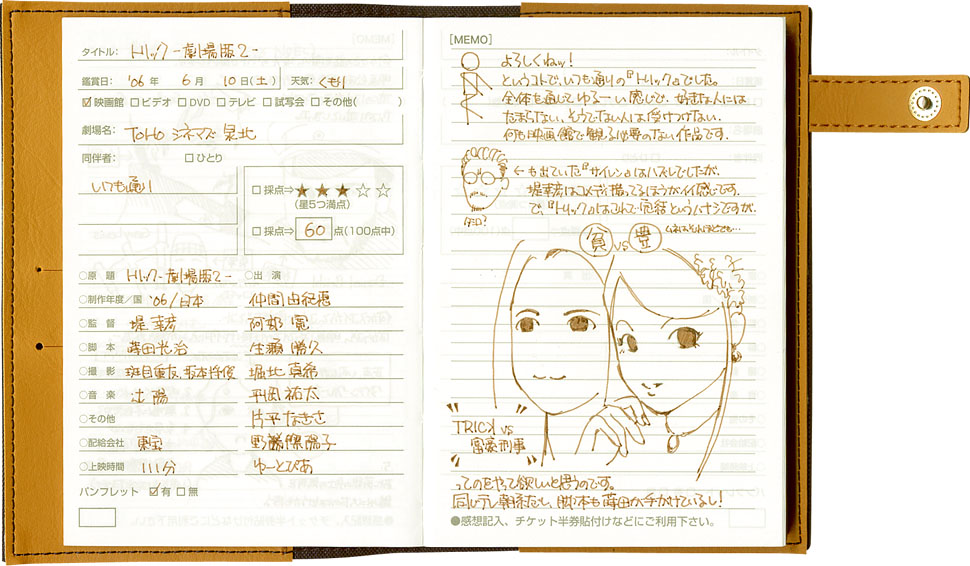 タイトル: トリック-劇場版2-
鑑賞日: '06年 6月 10日(土) 天気: くもり
☑映画館 □ビデオ □DVD □テレビ □試写会 □その他( )
劇場名: TOHO シネマズ 泉北
同伴者: □ひとり
いつも通り
□採点⇒★★★☆☆
(星5つ満点)
□採点⇒ 60 点(100点中)
○原 題 トリック-劇場版2-
○制作年度/国 '06/日本
○監 督 堤 幸彦
○脚 本 蒔田光治
○撮 影 斑目重友、
○音 楽 辻 陽
○その他
○配給会社 東宝
○上映時間 111分
パンフレット ☑有 □無
○出 演
仲間由紀恵
阿部 寛
生瀬 勝久
堀北 真希
平岡 祐太
片平なぎさ
野際陽子
ゆーとぴあ
[MEMO]
よろしくねッ!
というコトで、いつも通りの『トリック』でした。
全体を通じてゆる~い感じで、好きな人には
たまらない、そうでない人は受けつけない。
何も映画館で観る必要のない作品です。
←も出ていた『サイレン』はハズレでしたが、
堤幸彦はコメディ撮ってるほうがイイ感じです。
で、『トリック』はこれで完結というハナシですが、
貧 vs 豊
TRICK vs
富豪刑事
ってのをやって欲しいと思うのです。
同じテレ朝系だし、脚本も蒔田が手がけているし!
●感想記入、チケット半券貼付けなどにご利用下さい。